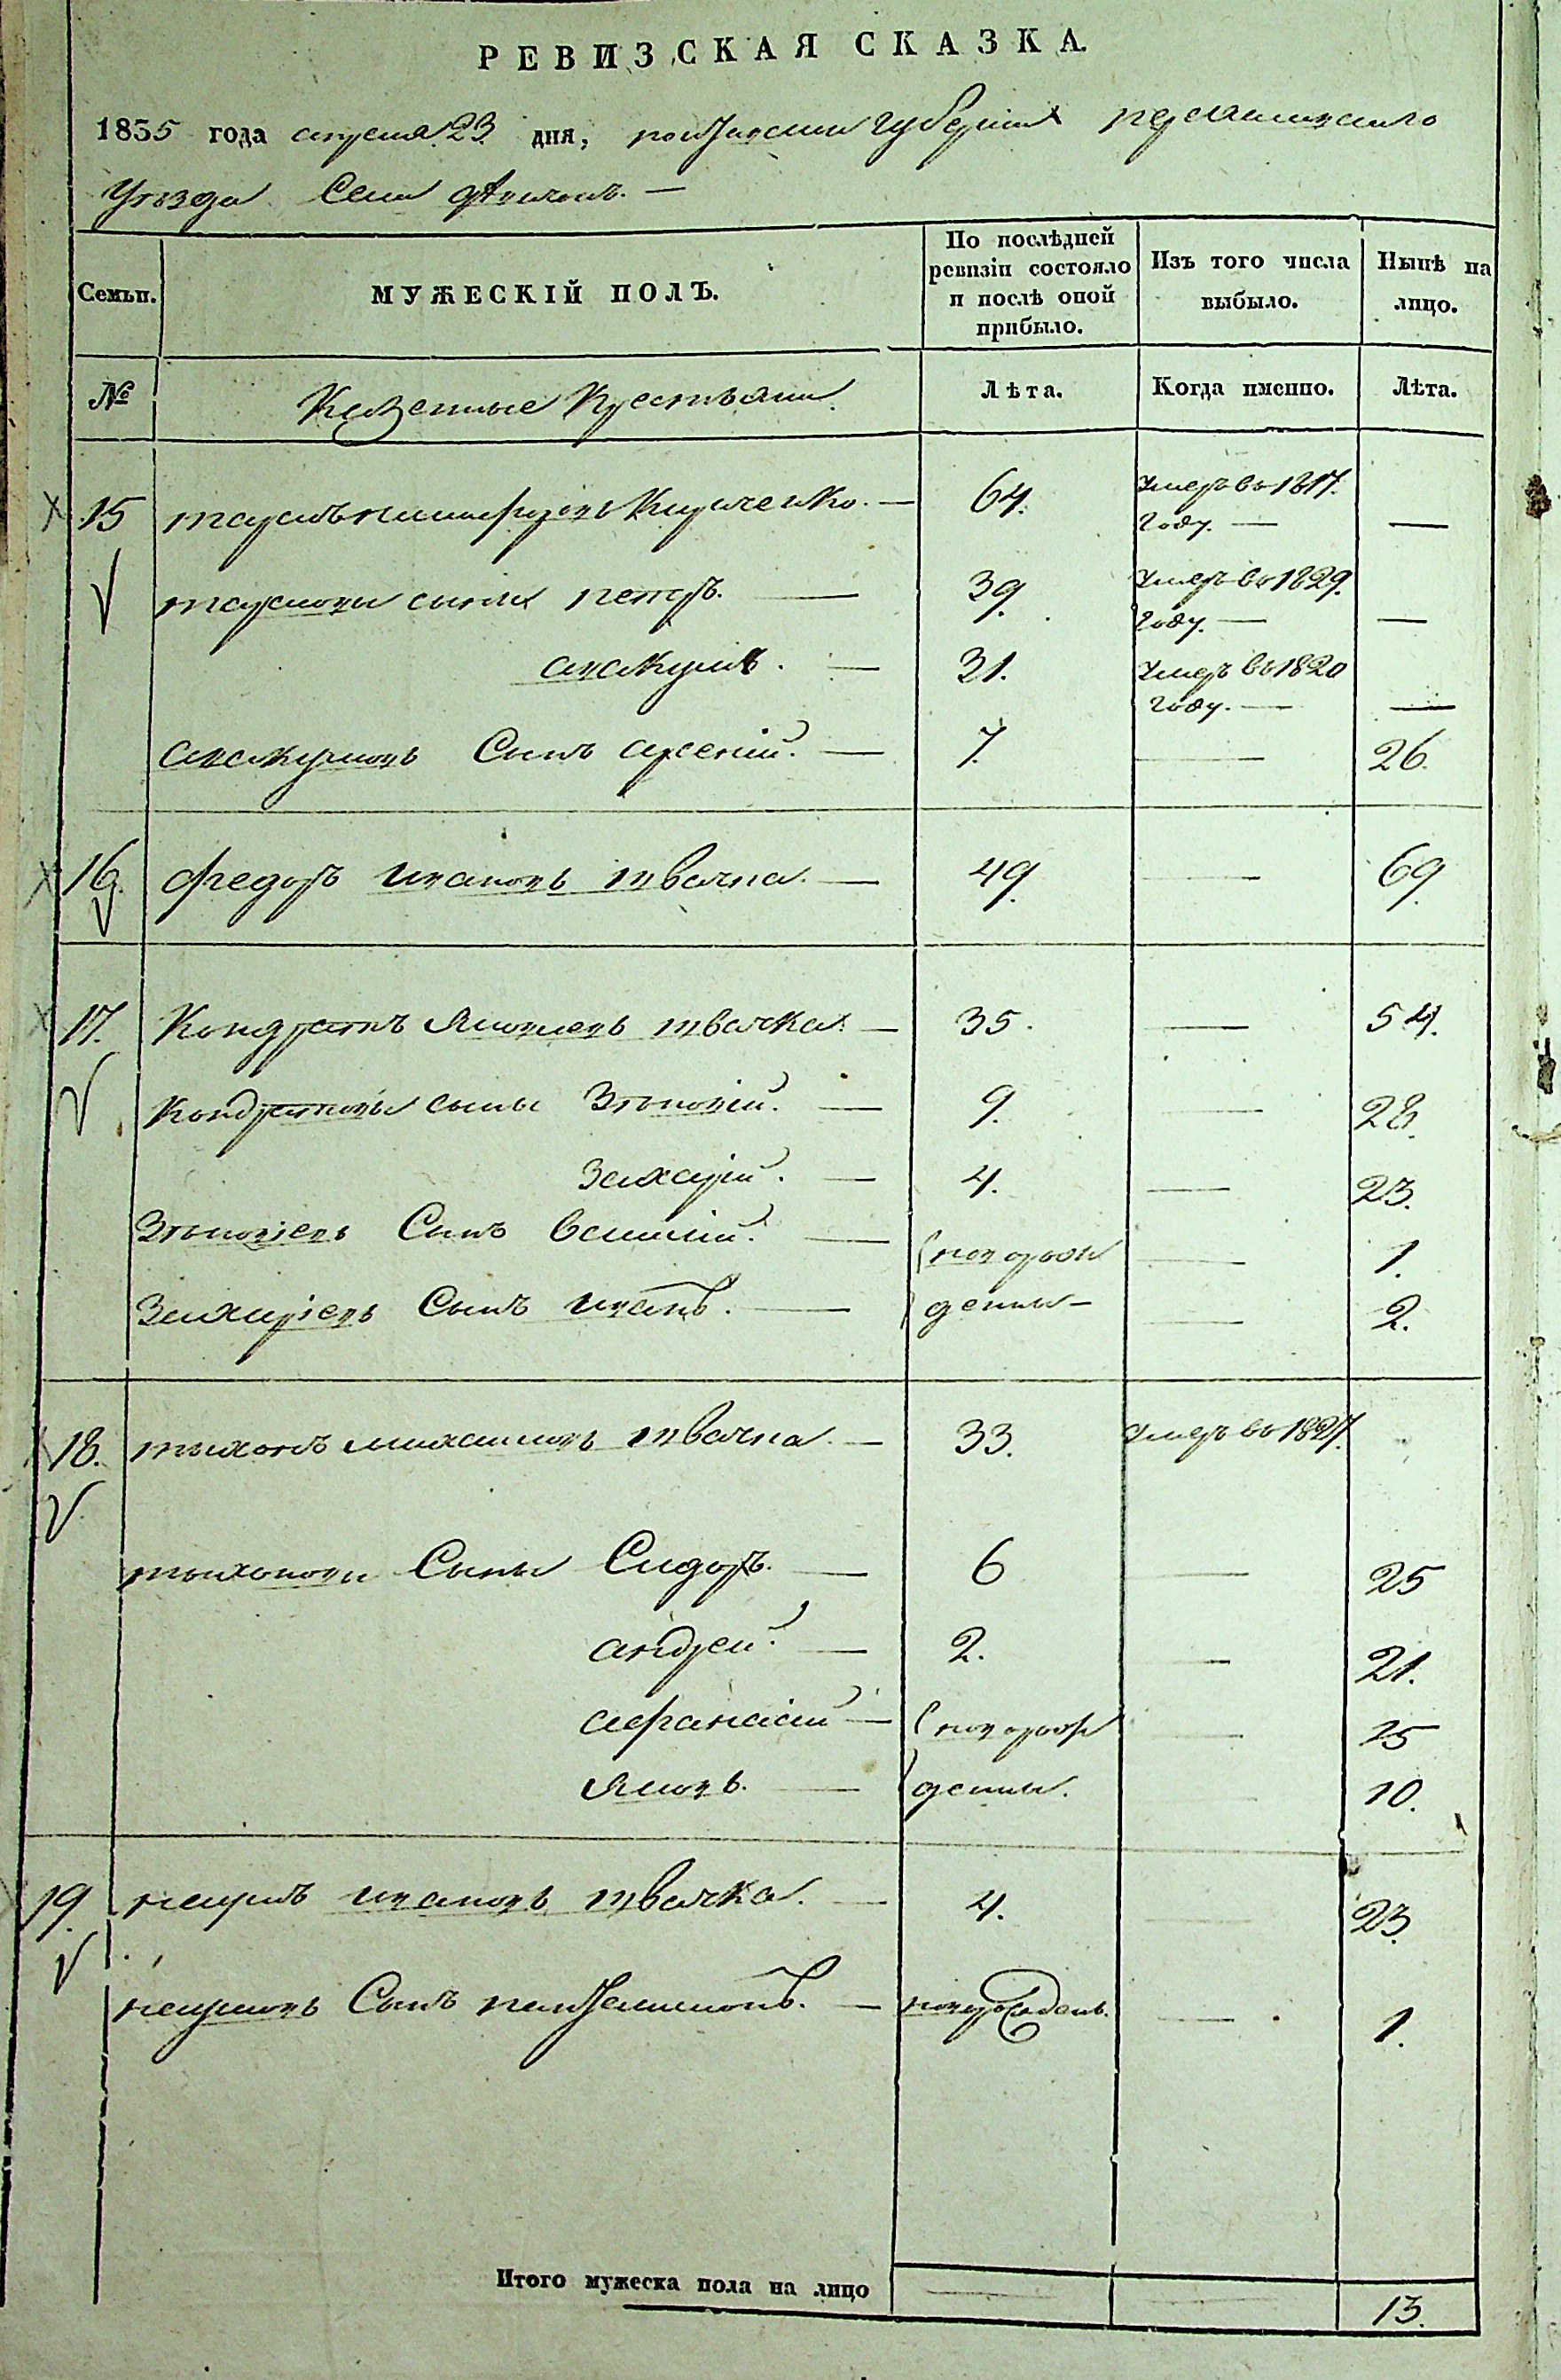 РЕВИЗСКАЯ СКАЗКА.
1835 года апреля 23 дня, полтавской губерніи кременчугского
Уезда Села
Семьи. МУЖЕСКІЙ ПОЛЪ. По послѣдней ревизіи состояло и послѣ оной прибыло. Изъ того числа выбыло. Нынѣ на лицо.
№ Казенные Крестьяни. Лѣта. Когда имснно. Лѣта.
15 Кириченко. — 64. умеръ во 1817. году. — —
сыны петръ. — 39. умеръ во 1829. году. — —
авакумъ. — 31. умеръ во 1820 году. — —
авакумовъ Сынъ арсеній. — 7. — 26.
16. федоръ ивановъ твачка. — 49. — 69.
17. Кондратъ Яковлевъ твачка. — 35. — 54.
Кондратовы сыны Зѣновій. — 9. — 28.
Захарій. — 4. — 23.
Зѣновіевъ Сынъ василій. — новорож — 1.
Захаріевъ Сынъ иванъ. — дены — — 2.
18. тихонъ михайловъ твачка. — 33. умеръ во 1827.
тихоновы Сыны Сидоръ. — 6 — 25
андрей. — 2. — 21.
афанасій — новорож — 15
Яковъ. — дены. — 10.
19. наумъ ивановъ твачка. — 4. — 23.
наумовъ Сынъ пантелимонъ. — новорожденъ. — 1.
Итого мужеска пола на лицо — — 13.